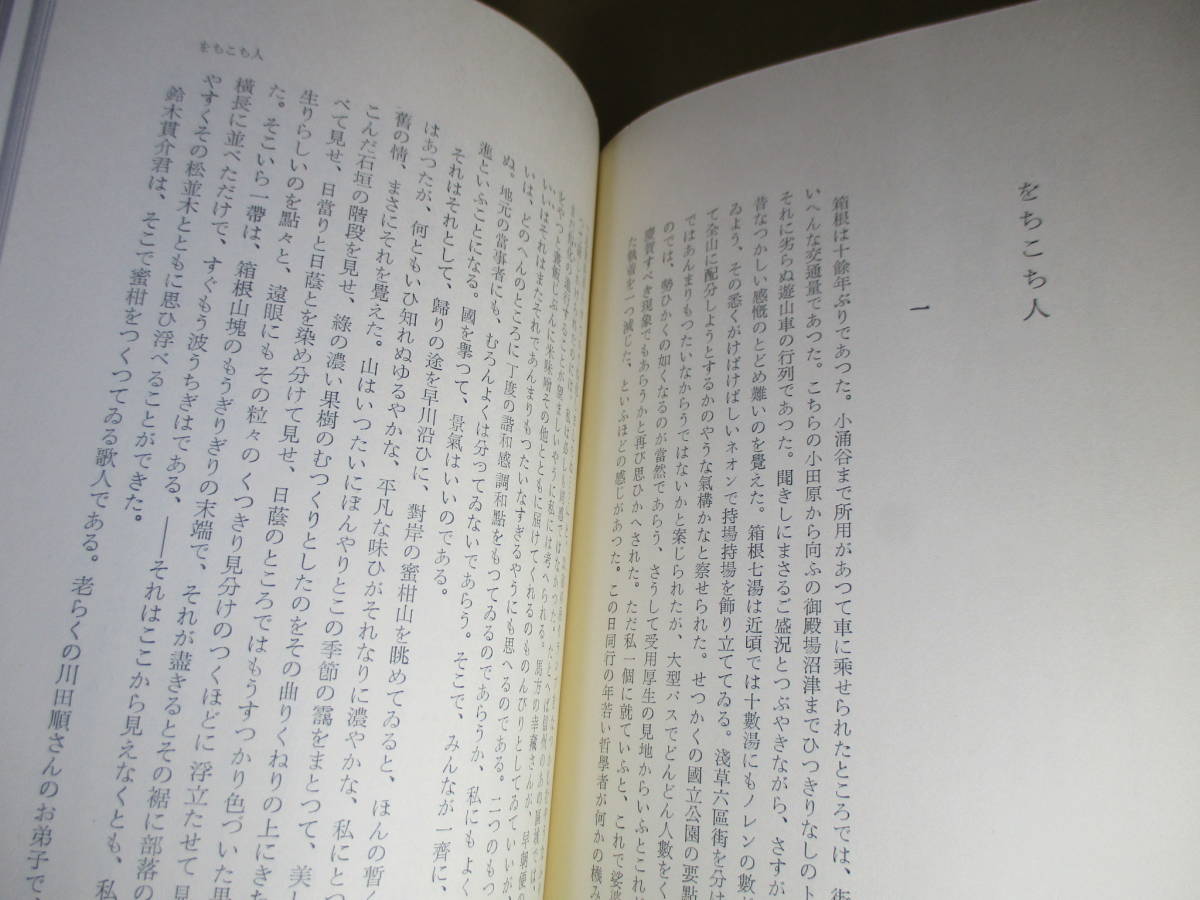 をちこち人
一
箱根は十餘年ぶりであつた。小涌谷まで所用があつて車に乘せられたところでは、街
いへんな交通量であつた。こちらの小田原から向ふの御殿場沼津までひつきりなしのト
それに劣らぬ遊山車の行列であつた。聞きしにまさるご盛況とつぶやきながら、さすが
昔なつかしい感慨のとどめ難いのを覺えた。箱根七湯は近頃では十數湯にもノレンの數が
ゐよう、その悉くがけばけばしいネオンで持場持場を飾り立ててゐる。淺草六區街を分け
て全山に配分しようとするかのやうな氣構かなと察せられた。せつかくの國立公園の要點
ではあんまりもつたいなからうではないかと案じられたが、大型バスでどんどん人數をく
のでは、勢ひかくの如くなるのが當然であらう、さうして受用厚生の見地からいふとこれに
慶賀すべき現象でもあらうかと再び思ひかへされた。ただ私一個に就ていふと、これで娑婆
た執着を一つ減じた、といふほどの感じがあつた。この日同行の年若い哲學者が何かの機み
をもこも人
いはそれはまたそれであんまりもつたいなすぎるやうにも思へるのである。二つのもつ
いは、どのへんのところに丁度の諧和感 調和點をもつてゐるのであらうか、私にもよく
ぬ。地元の當事者にも、むろんよくは分つてゐないであらう。そこで、みんなが一齊に、
進といふことになる。國を擧つて、景氣はいいのである。
それはそれとして、歸りの途を早川沿ひに、對岸の蜜柑山を眺めてゐると、ほんの暫く
はあつたが、何ともいひ知れぬゆるやかな、平凡な味ひがそれなりに濃やかな、私にとつ
舊の情、まさにそれを覺えた。山はいつたいにぼんやりとこの季節の靄をまとつて、美し
こんだ石垣の階段を見せ、綠の濃い果樹のむつくりとしたのをその曲りくねりの上にきち
べて見せ、日當りと日蔭とを染め分けて見せ、日蔭のところではもうすつかり色づいた果
生りらしいのを點々と、遠眼にもその粒々の くつきり見分けのつくほどに 浮立たせて 見
た。そこいら一帶は、箱根山塊のもうぎりぎりの末端で、それが盡きるとその裾に部落の
橫長に並べただけで、すぐもう波うちぎはである、――それはここから見えなくとも、私
やすくその松並木とともに思ひ浮べることができた。
鈴木貫介君は、そこで蜜柑をつくつてゐる歌人である。老らくの川田順さんのお弟子で、